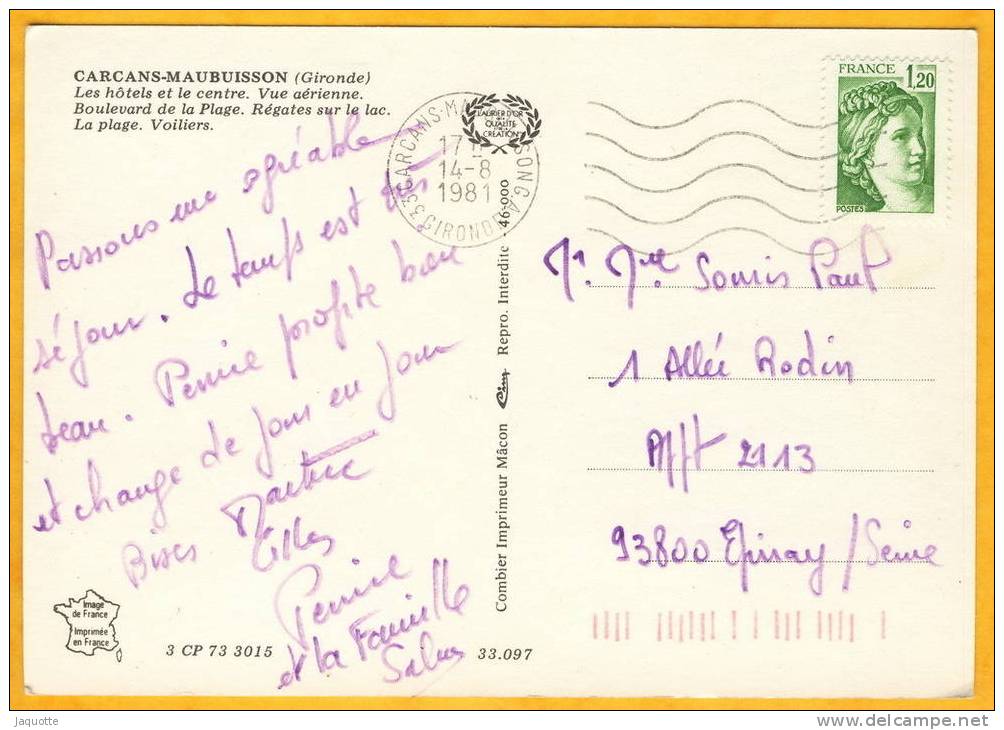 CARCANS-MAUBUISSON (Gironde)
Les hôtels et le centre. Vue aérienne.
Boulevard de la Plage. Régates sur le lac.
La plage. Voiliers.
LAURIER D'OR
DE LA
QUALITÉ
CRÉATION
33 CARCANS-MA
GIRONDE
17
14-8
1981
FRANCE
1,20
POSTES
Passons une agréable
séjour. Le temps est très
beau. Perrine profite bien
et change de jour en jour
Bises Martine
Gilles
Perrine
et la Famille
Mr. Mme Paul
1 Allée Rodin
Appt 2113
93800 Epinay/Seine
Combier Imprimeur Mâcon Cim Repro. Interdite 46-000
Image
de France
Imprimée
en France
3 CP 73 3015
33.097
Jaquotte
www.delcampe.net